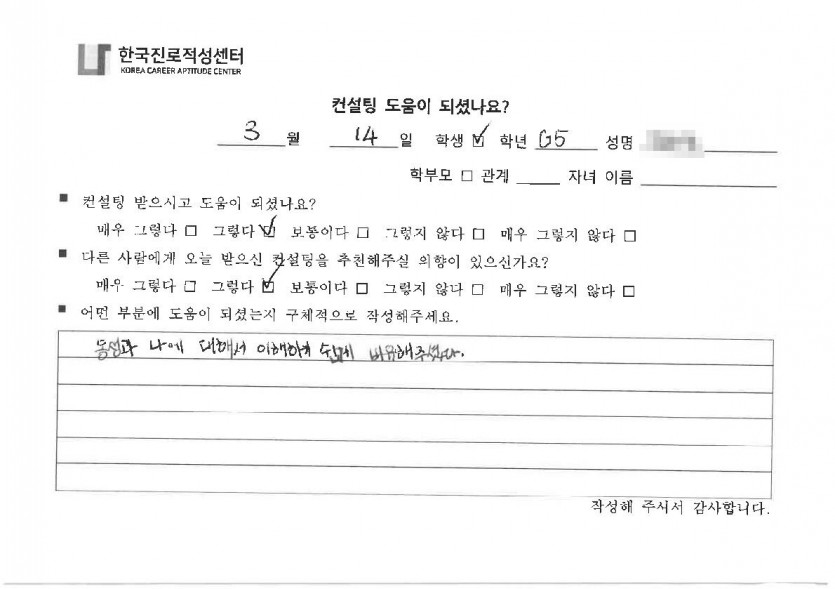 한국진로적성센터
KOREA CAREER APTITUDE CENTER
컨설팅 도움이 되셨나요?
3 월 14 일 학생 ☑ 학년 G5 성명
학부모 □ 관계 ____ 자녀 이름
■ 컨설팅 받으시고 도움이 되셨나요?
매우 그렇다 □ 그렇다 ☑ 보통이다 □ 그렇지 않다 □ 매우 그렇지 않다 □
■ 다른 사람에게 오늘 받으신 컨설팅을 추천해주실 의향이 있으신가요?
매우 그렇다 □ 그렇다 ☑ 보통이다 □ 그렇지 않다 □ 매우 그렇지 않다 □
■ 어떤 부분에 도움이 되셨는지 구체적으로 작성해주세요.
나에 대해서 이해하기 쉽게 비유해주셨다.
작성해 주시서 감사합니다.